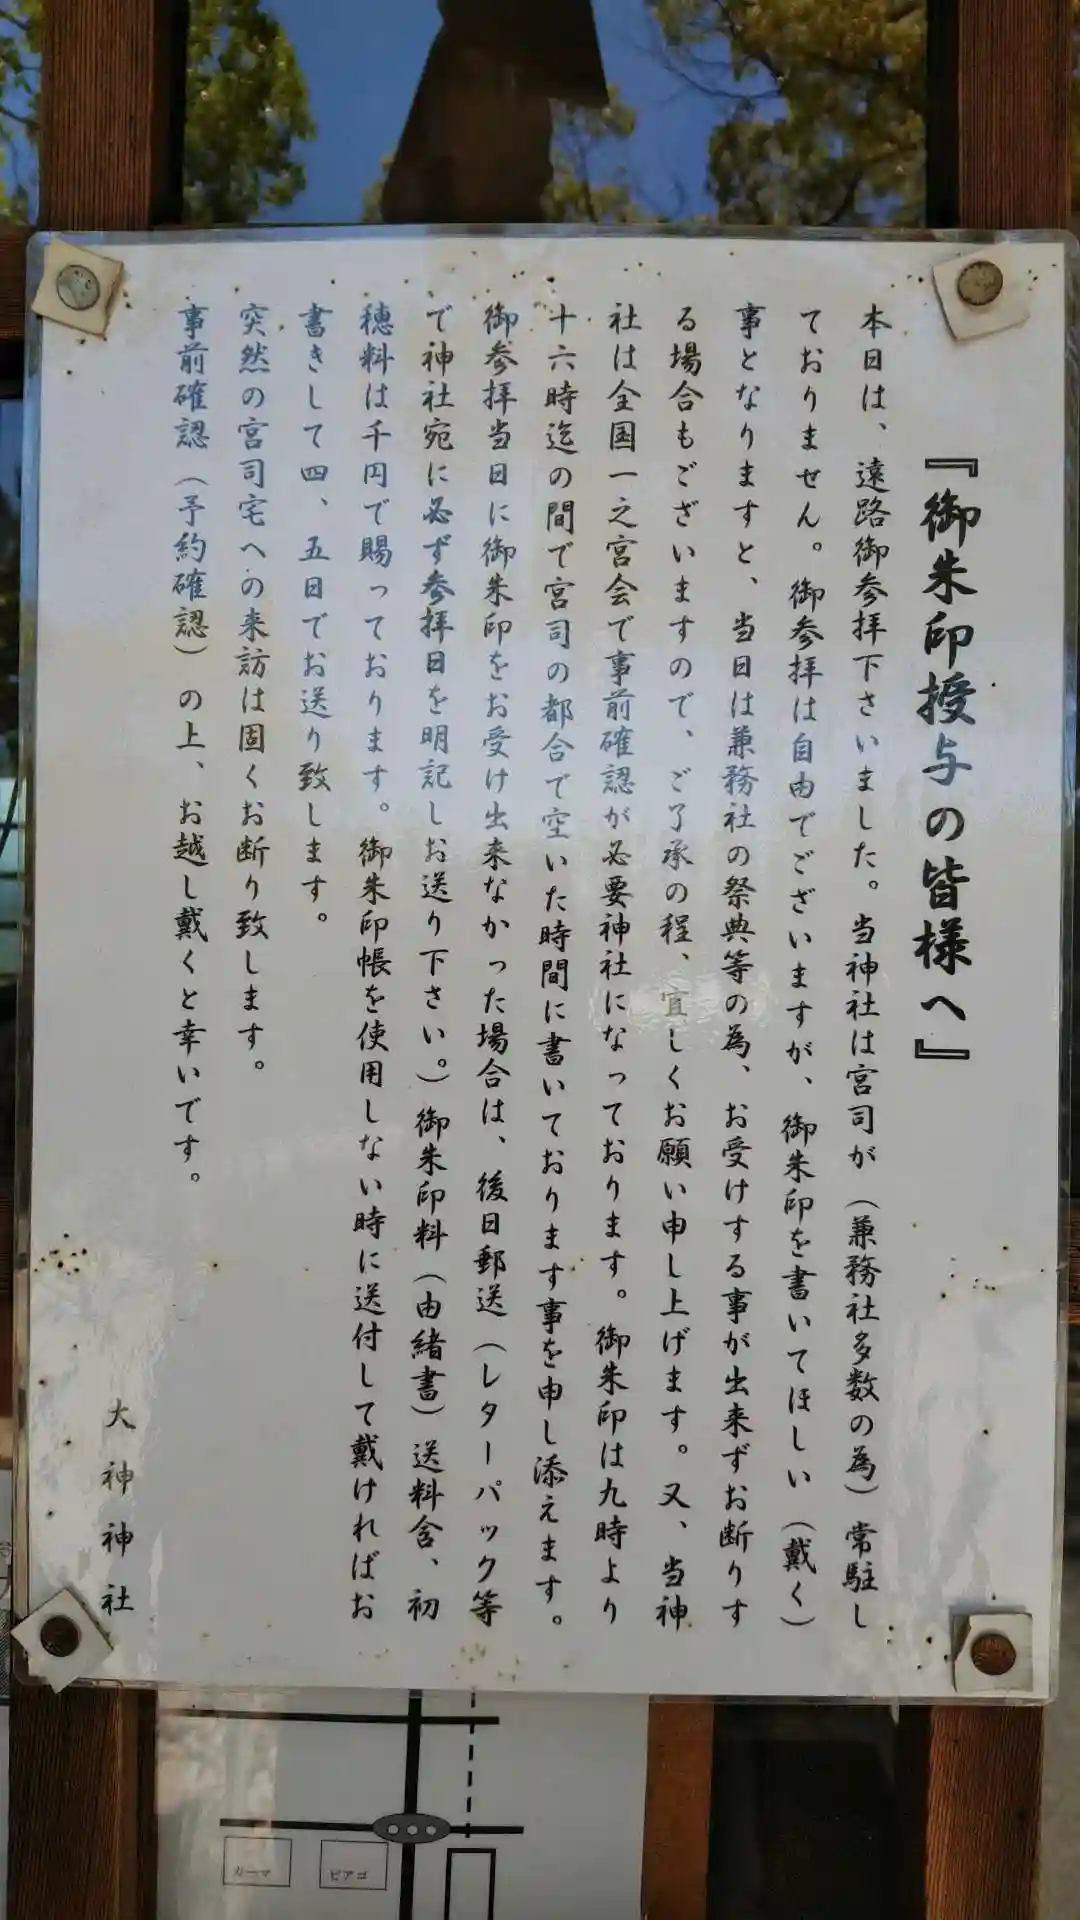 『御朱印授与の皆様へ』
本日は、遠路御参拝下さいました。当神社は宮司が（兼務社多数の為）常駐し
ておりません。御参拝は自由でございますが、御朱印を書いてほしい（戴く）
事となりますと、当日は兼務社の祭典等の為、お受けする事が出来ずお断りす
る場合もございますので、ご了承の程、宜しくお願い申し上げます。又、当神
社は全国一之宮会で事前確認が必要神社になっております。御朱印は九時より
十六時迄の間で宮司の都合で空いた時間に書いております事を申し添えます。
御参拝当日に御朱印をお受け出来なかった場合は、後日郵送（レターパック等
で神社宛に必ず参拝日を明記しお送り下さい。）御朱印料（由緒書）送料含、初
穂料は千円で賜っております。御朱印帳を使用しない時に送付して戴ければお
書きして四、五日でお送り致します。
突然の宮司宅への来訪は固くお断り致します。
事前確認（予約確認）の上、お越し戴くと幸いです。
大神神社
カーマ
ピアゴ